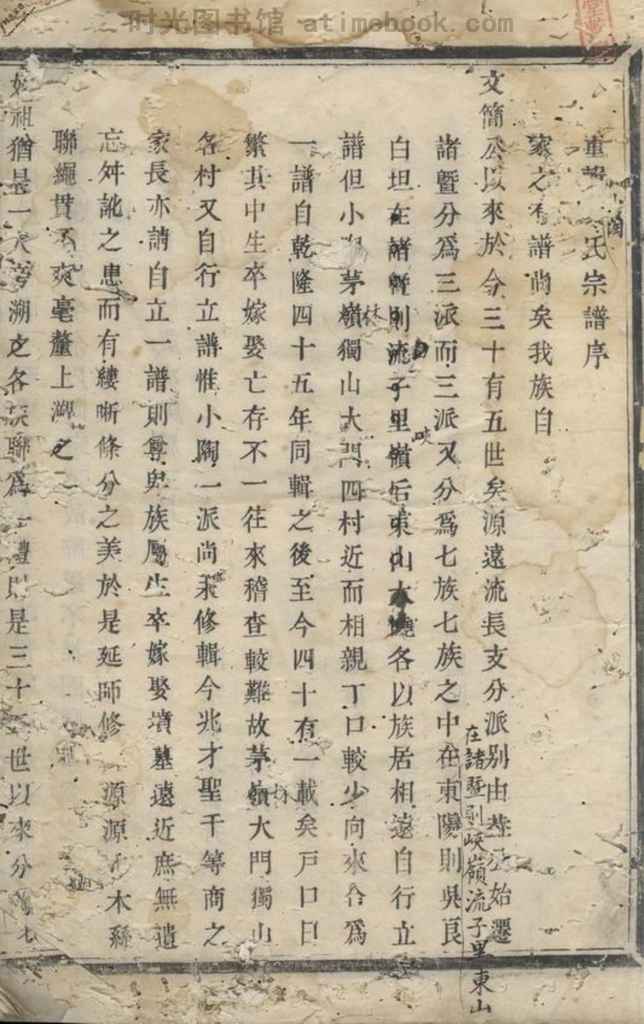 时光图书馆 atimebook.com
重 氏宗譜序
家之有譜尚矣我族自
文簡公以來於今三十有五世矣源遠流長支分派別由 公始遷
諸暨分爲三派而三派又分爲七族七族之中在東陽則吳良
在諸暨則峽嶺流子里東山
白坦在諸暨則流子里嶺后東山 各以族居相遠自行立
譜但小 茅嶺獨山大門四村近而相親丁口較少向來合爲
一譜自乾隆四十五年同輯之後至今四十有一載矣戶口日
繁其中生卒嫁娶亡存不一往來稽查較難故茅嶺大門獨山
各村又自行立譜惟小陶一派尚未修輯今兆才聖千等商之
家長亦請自立一譜則尊卑族屬生卒嫁娶墳墓遠近庶無遺
忘舛訛之患而有縷晰條分之美於是延師修 源源 木繇
聯繩貫不爽毫釐上溯之
始祖猶是一 溯之各族聯爲一體則是三十 世以來分